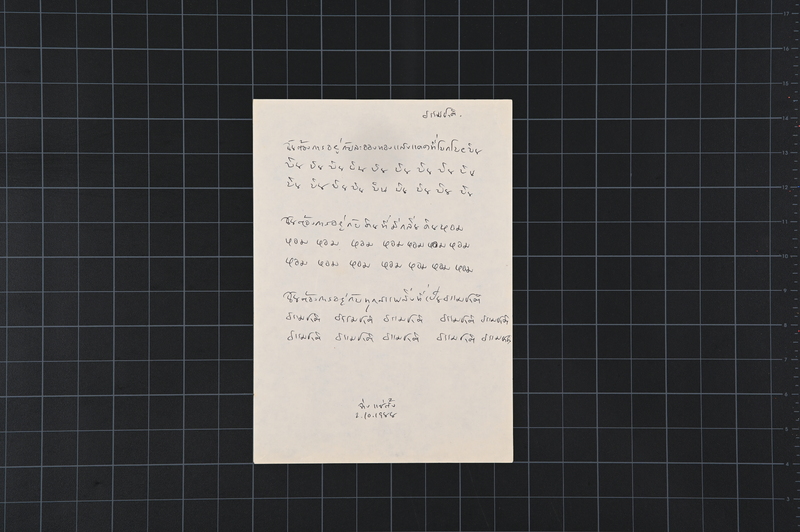 ธรรมชาติ.
ฉันต้องการอยู่กับละอองของแสงแดดที่โบกโบยบิน
บิน บิน บิน บิน บิน บิน บิน บิน บิน
บิน บิน บิน บิน บิน บิน บิน บิน บิน
ฉันต้องการอยู่กับดินที่มีกลิ่นดินหอม
หอม หอม หอม หอม หอม หอม หอม
หอม หอม หอม หอม หอม หอม หอม
ฉันต้องการอยู่กับทุกสรรพสิ่งที่เป็นธรรมชาติ
ธรรมชาติ ธรรมชาติ ธรรมชาติ ธรรมชาติ ธรรมชาติ
ธรรมชาติ ธรรมชาติ ธรรมชาติ ธรรมชาติ ธรรมชาติ
2.10.1988